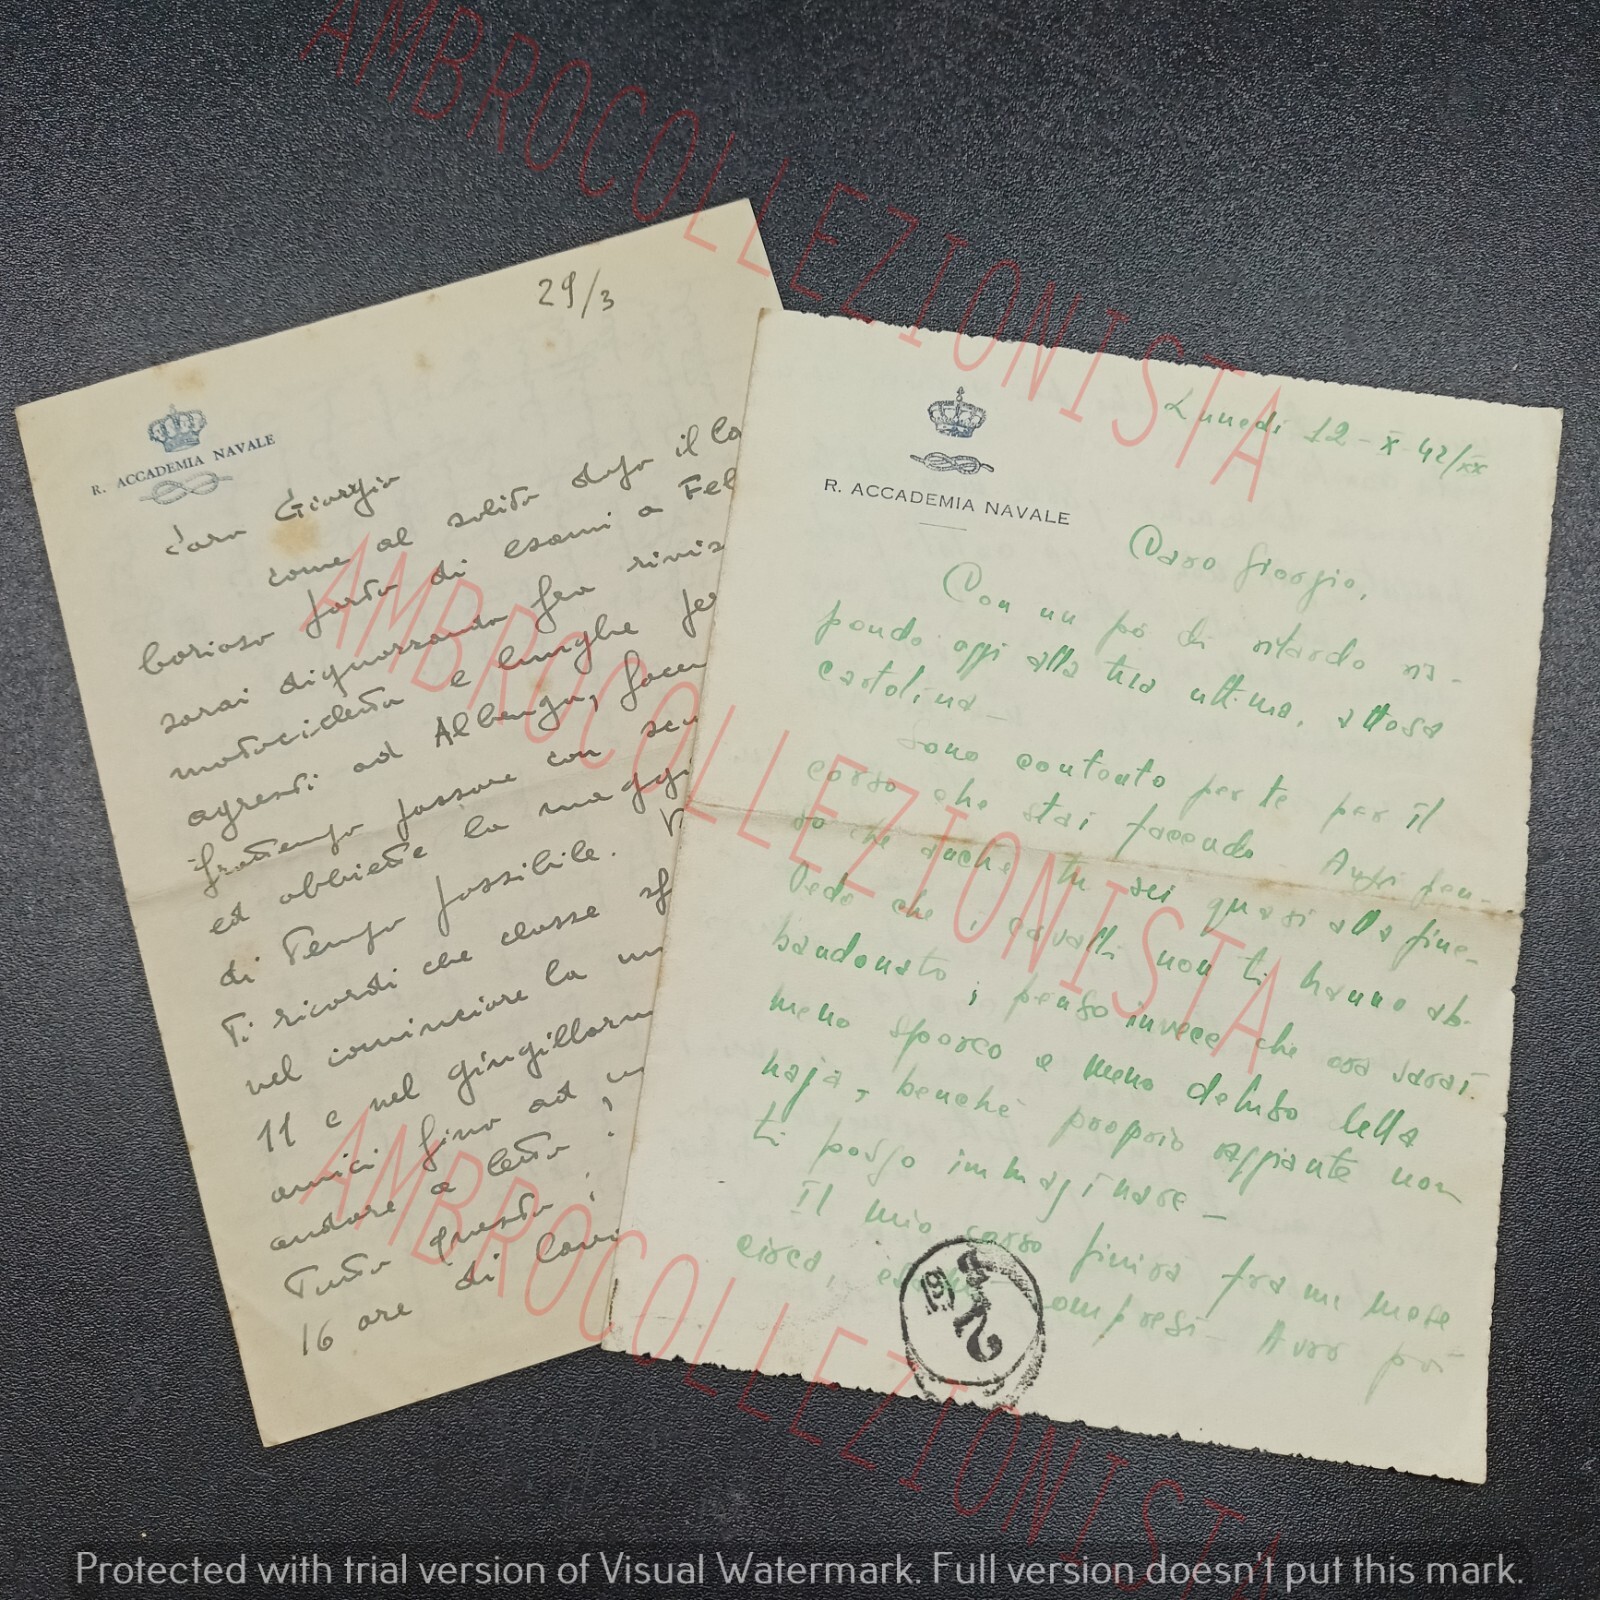 29/3
R. ACCADEMIA NAVALE
Caro Giorgio
come al solito dopo il la
borioso parto di esami a Feb
sarai
motocicletta e lunghe
agresti ad Albenga, facen
frattempo passare con
ed abbiette la maggi
di Tempo possibile.
Ti ricordi che classe
nel cominciare la
11 e nel gingillaru
amici fino ad
andare a letto!
Tutto questo;
16 ore di
Lunedì 12-X-42/XX
R. ACCADEMIA NAVALE
Caro Giorgio,
Con un pò di ritardo ris-
pondo oggi alla tua ultima, attesa
cartolina-
Sono contento per te per il
corso che stai facendo- Anzi pen-
so che anche tu sei quasi alla fine-
Vedo che i cavalli non ti hanno ab-
bandonato; penso invece che ora sarai
meno sporco e meno deluso della
naja, benchè proprio raggiante non
ti posso immaginare-
Il mio corso finirà fra un mese
circa, compresi- Avrò poi
AMBROCOLLEZIONISTA
AMBROCOLLEZIONISTA
AMBROCOLLEZIONISTA
Protected with trial version of Visual Watermark. Full version doesn't put this mark.